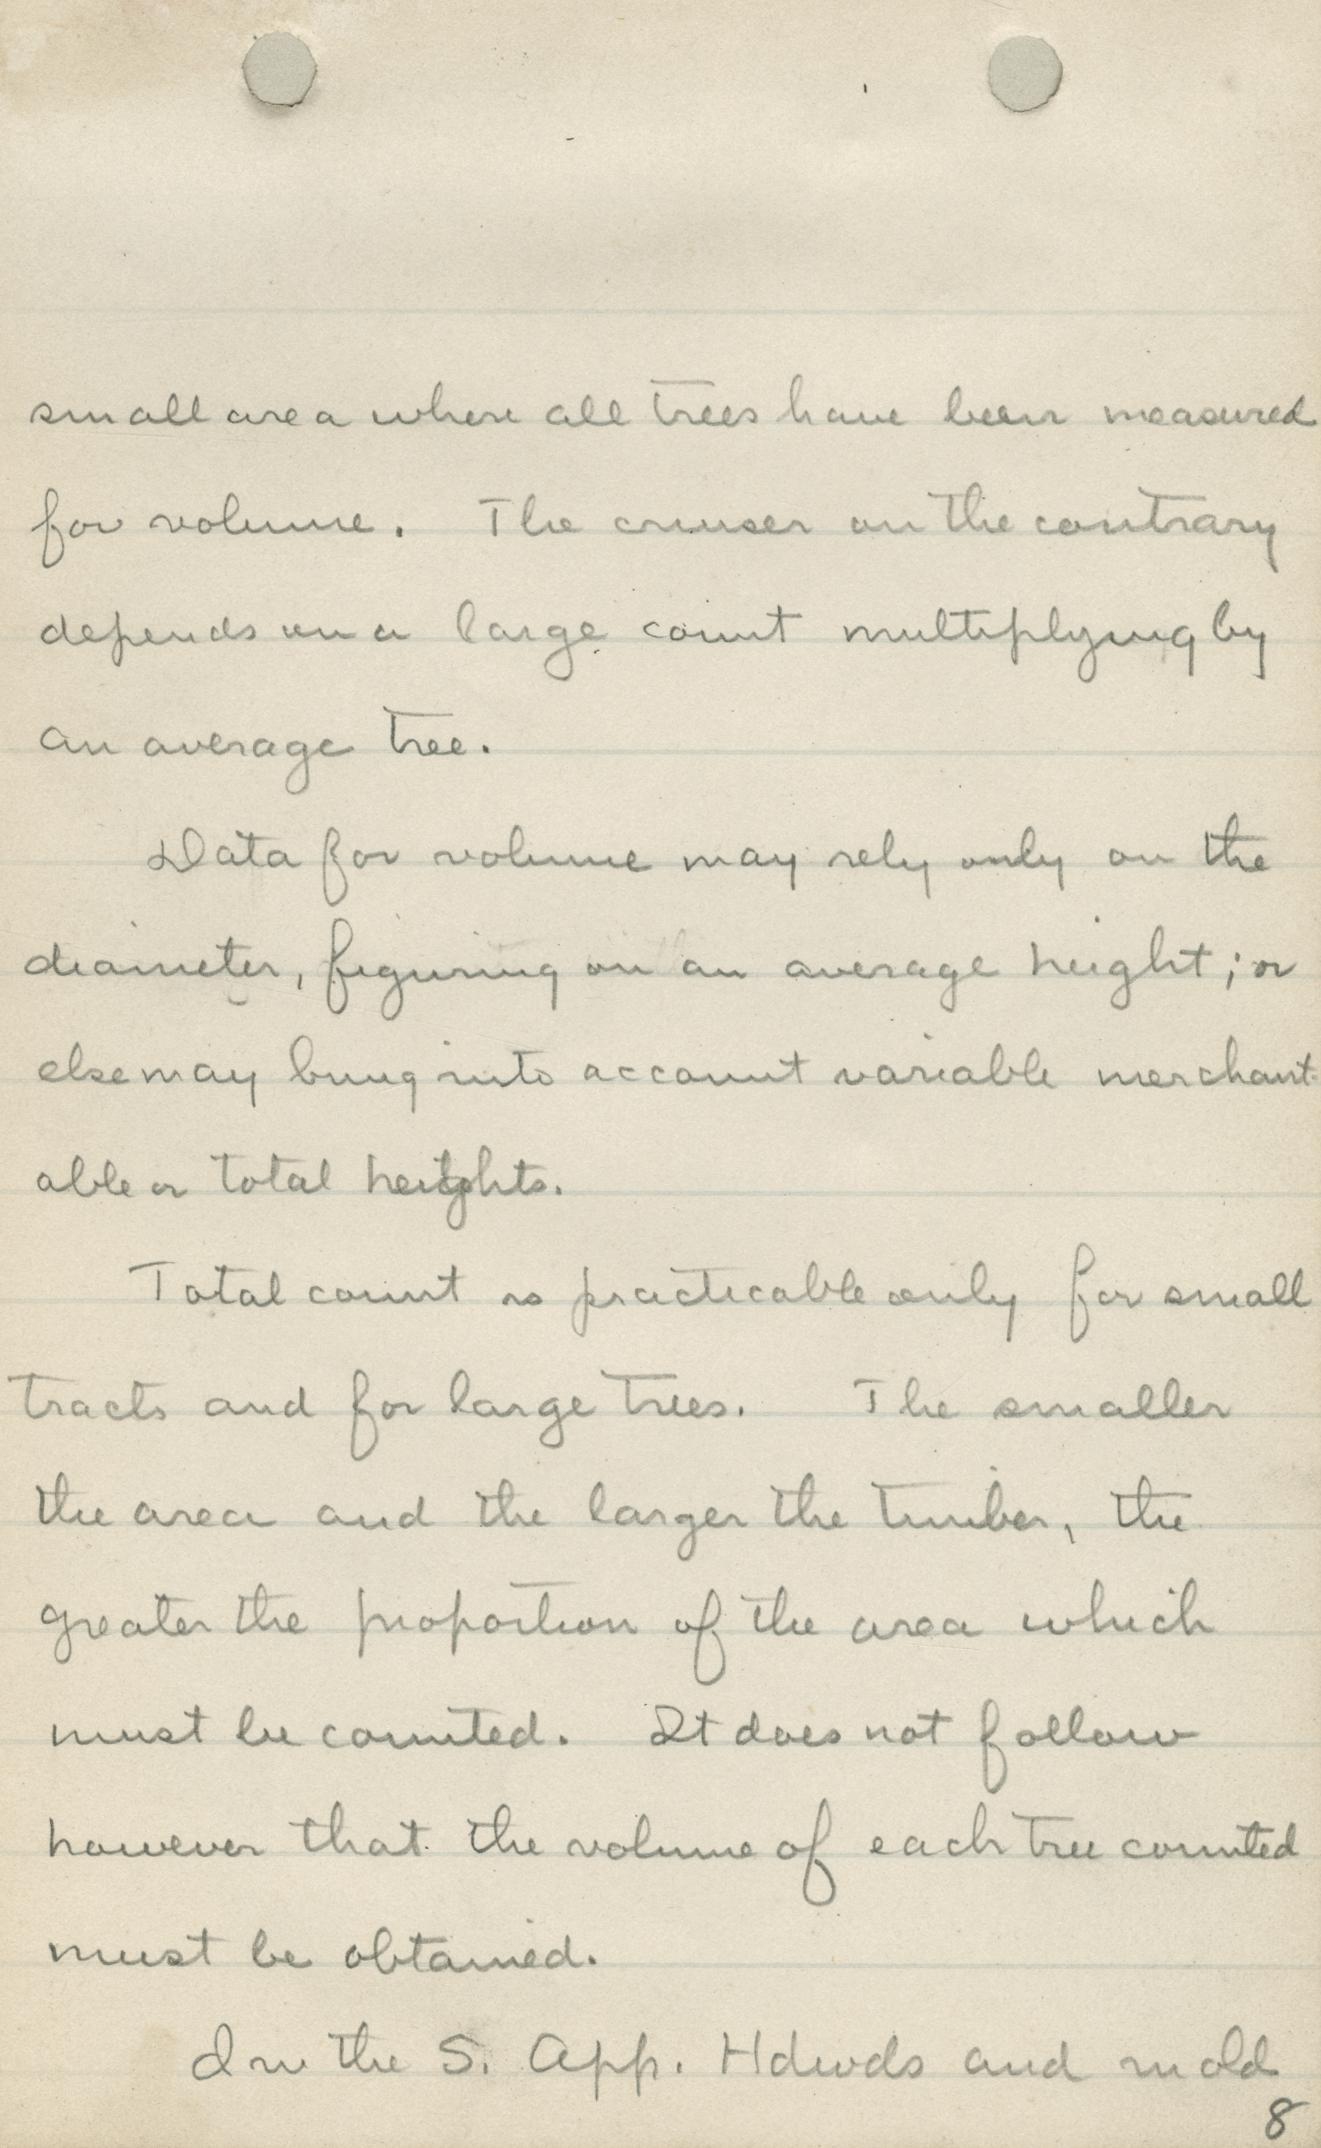 small area where all trees have been measured
for volume. The cruiser on the contrary
depends on a large count multiplying by
an average tree.
Data for volume may rely only on the
diameter, figuring on an average height; or
else may bring into account variable merchant-
able or total heights.
Total count is practicable only for small
tracts and for large trees. The smaller
the area and the larger the timber, the
greater the proportion of the area which
must be counted. It does not follow
however that the volume of each tree counted
must be obtained.
In the S. App. Hdwds and in old
8